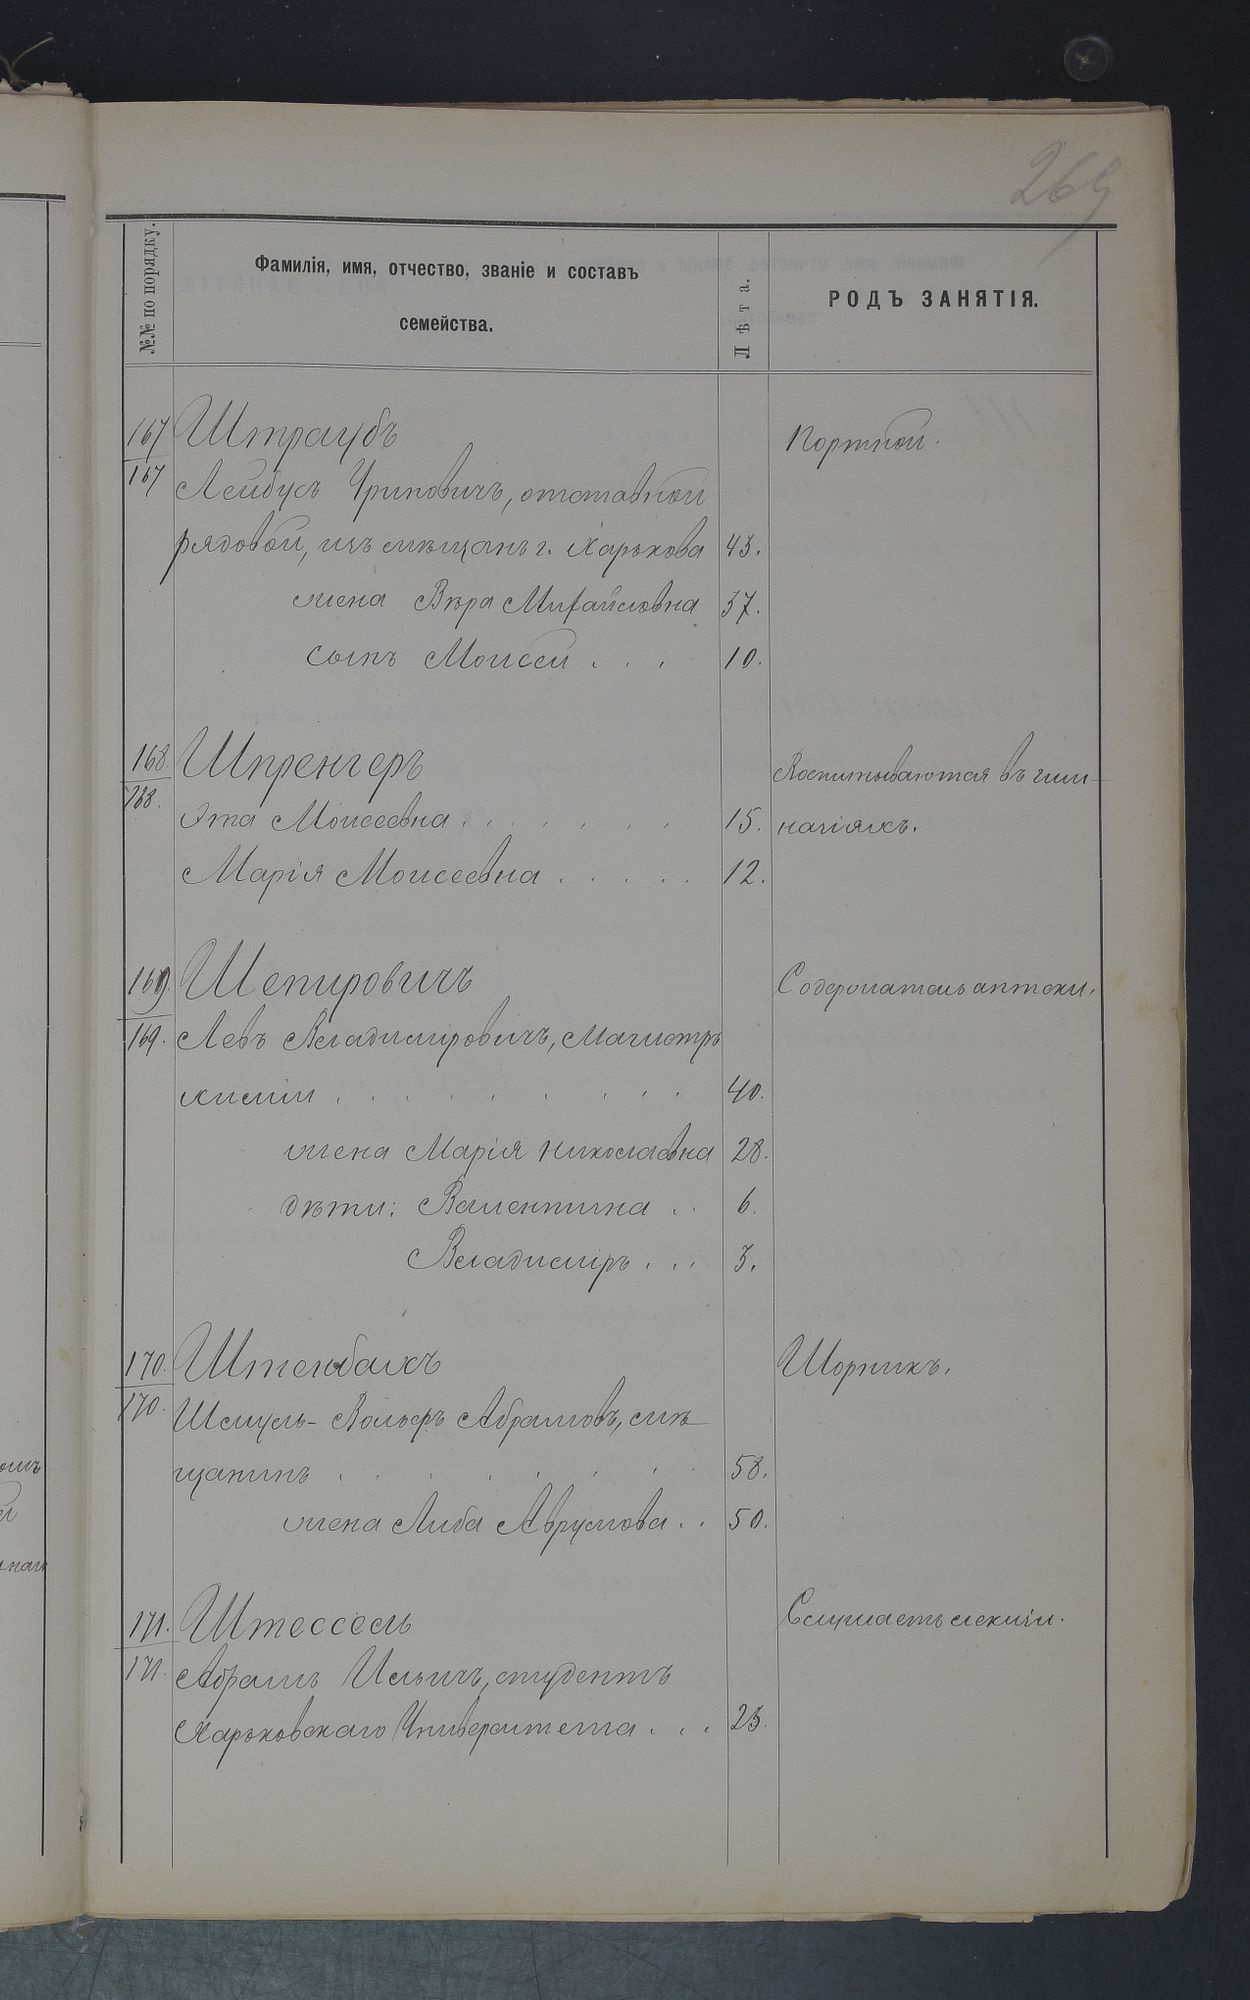 269
№№ по порядку.
Фамилія, имя, отчество, званіе и составъ
семейства.
Лѣта.
РОДЪ ЗАНЯТІЯ.
167 Штраубъ Портной.
167 Лейбусъ Уриновичъ, отставной
рядовой, изъ мѣщанъ г. Харькова 43.
жена Вѣра Михайловна 37.
сынъ Моисей . . . 10.
168. Шпренгеръ Воспитываются въ гим-
168. Эта Моисеевна . . . . . . . 15. назіяхъ.
Марія Моисеевна . . . . . 12.
169. Шепировичъ Содержатель аптеки.
169. Левъ Владиміровичъ, Магистръ
химіи . . . . . . . . . 40.
жена Марія Николаевна 28.
дѣти: Валентина . . 6.
Владиміръ . . . 3.
170. Штенбакъ Шорникъ.
170. Шмуль-Вольфъ Абрамовъ, мѣ
щанинъ . . . . . . . 58.
жена Либа Аврумова . . 50.
171. Штессель Слушаетъ лекціи.
171. Абрамъ Ильичъ, студентъ
Харьковскаго Университета . . . 23.